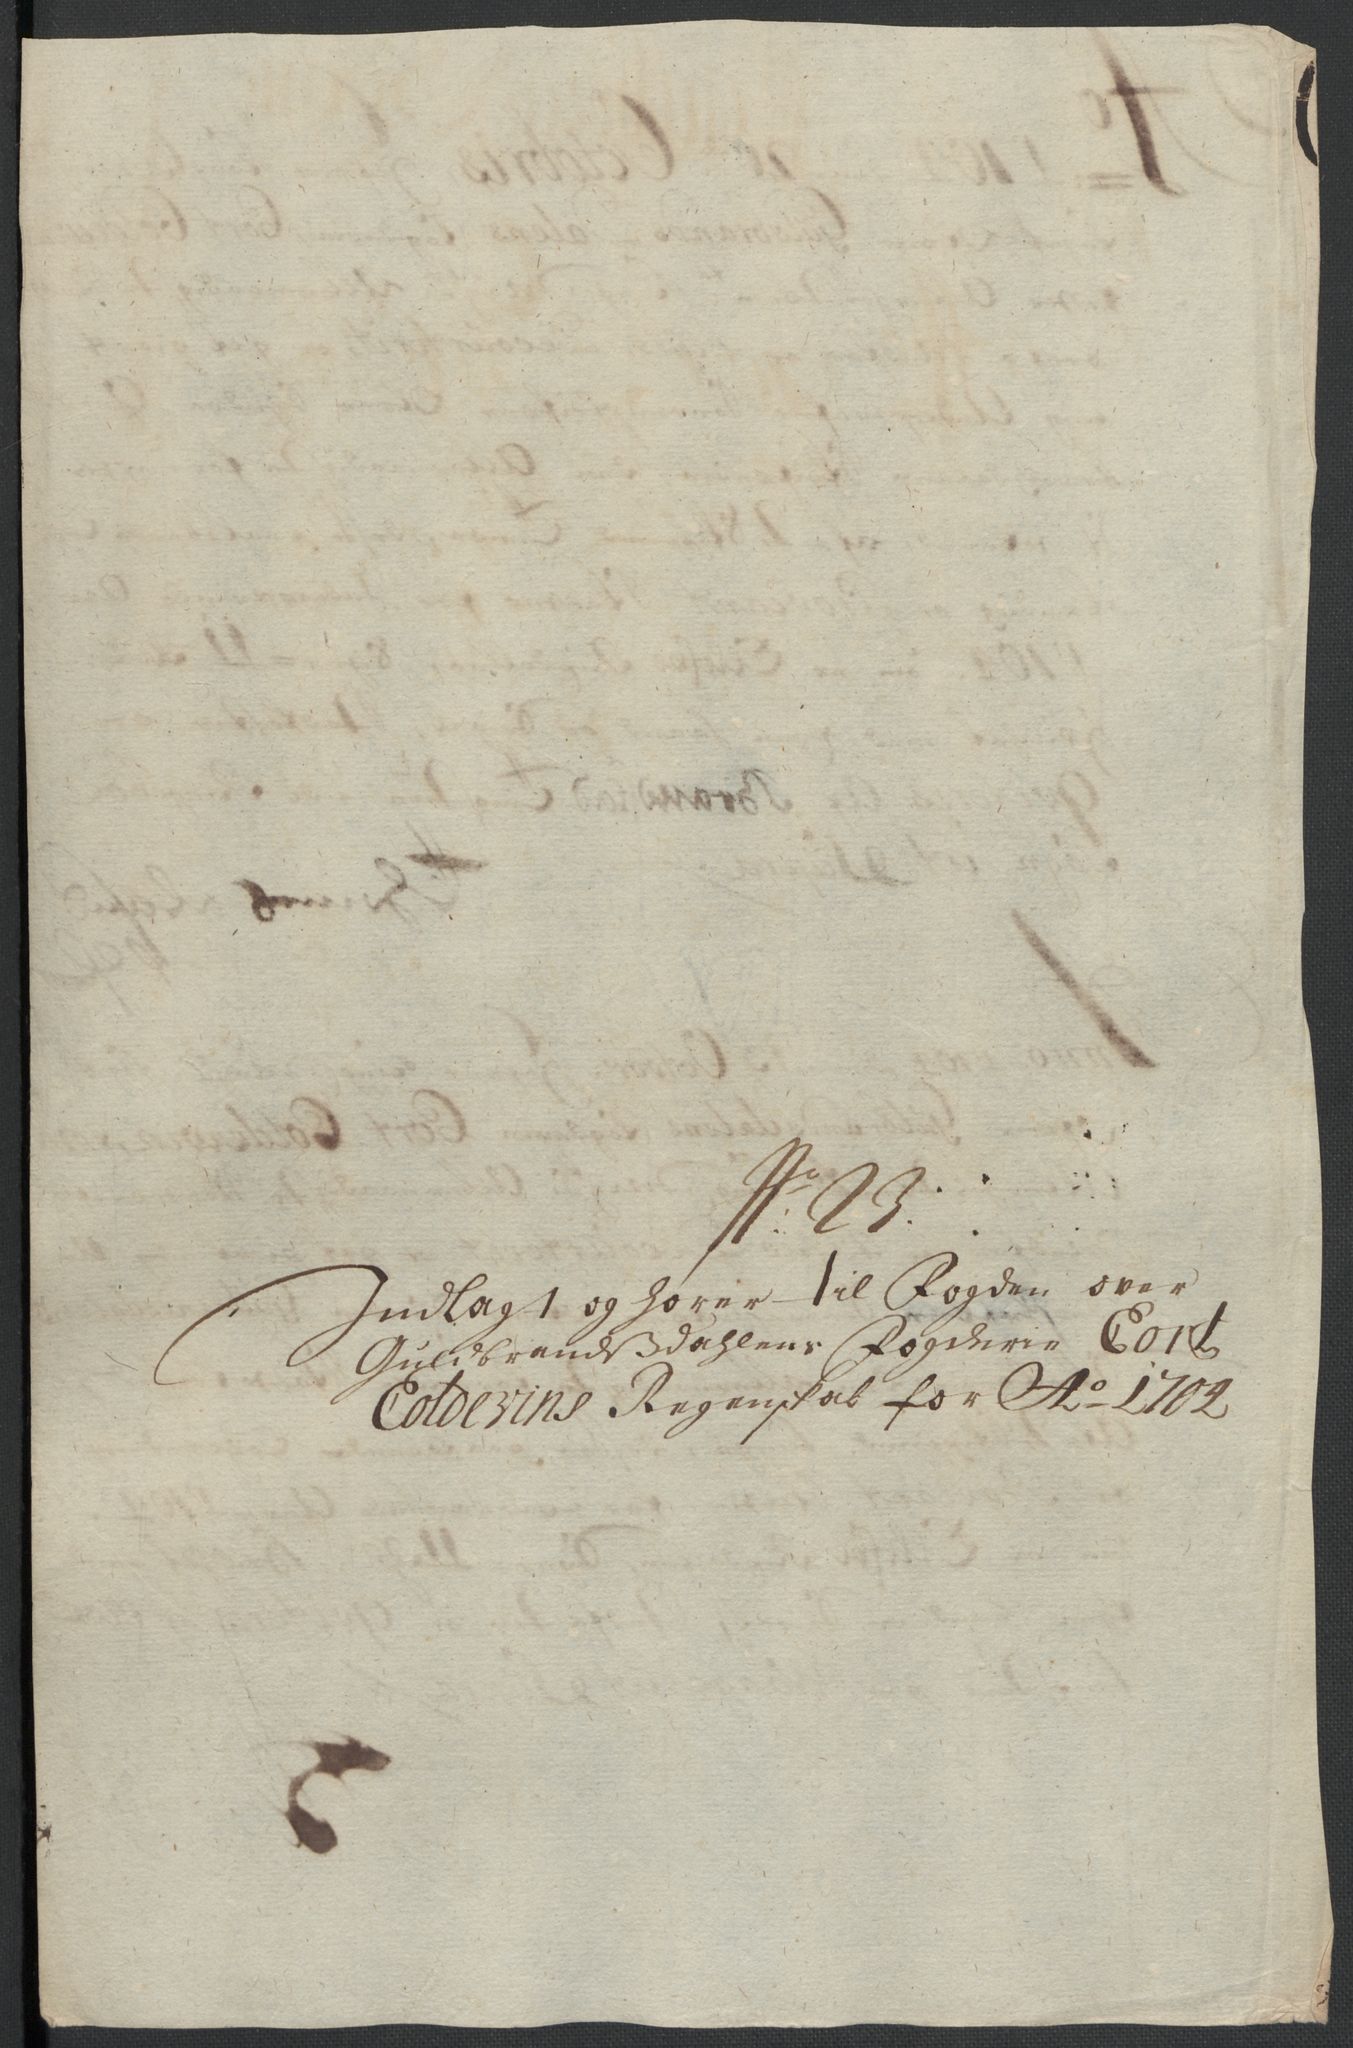 No 23.
Indlagt og hører til Fogden over
Guldbrandsdahlens Fogderie Cort
Coldevins Regenskab for Ao 1702